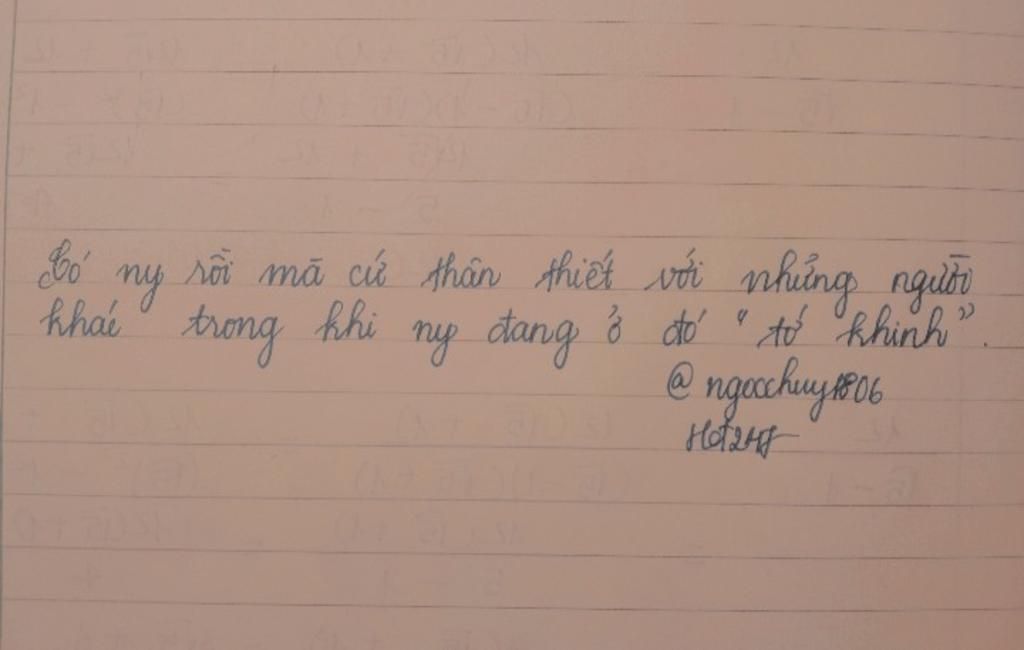 Có ny rồi mà cứ thân thiết với những người
khác trong khi ny đang ở đó “tớ khinh”.
@ngocchuy1806
Hot24h